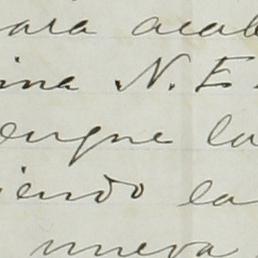 para acab
ina N. E.
engue la
iendo la
nueva